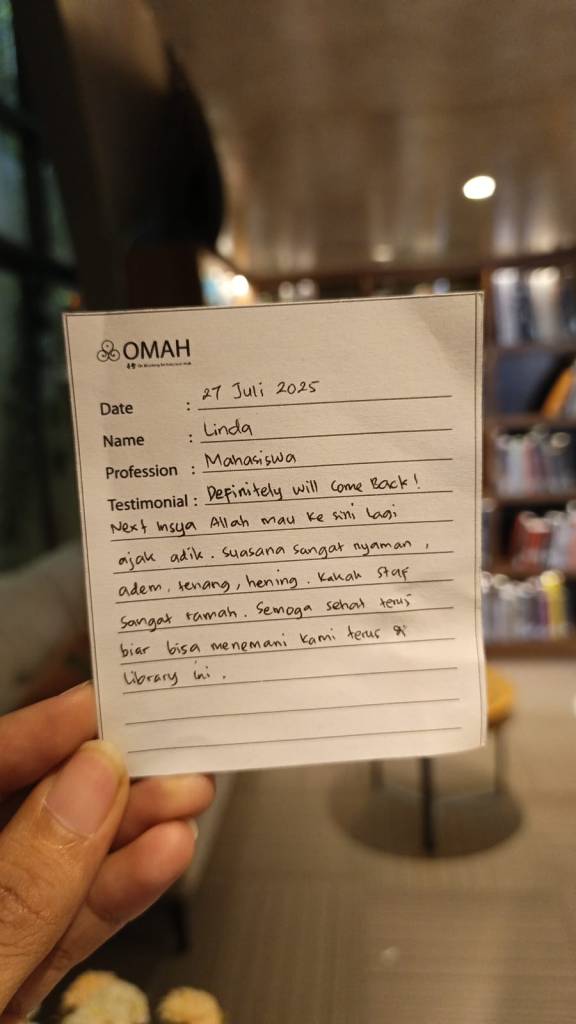 OMAH
Date : 27 Juli 2025
Name : Linda
Profession : Mahasiswa
Testimonial : Definitely will Come Back!
Next Insya Allah mau ke sini lagi
ajak adik. Suasana sangat nyaman,
adem, tenang, hening. Kakak staf
sangat ramah. Semoga sehat terus
biar bisa menemani kami terus di
Library ini.